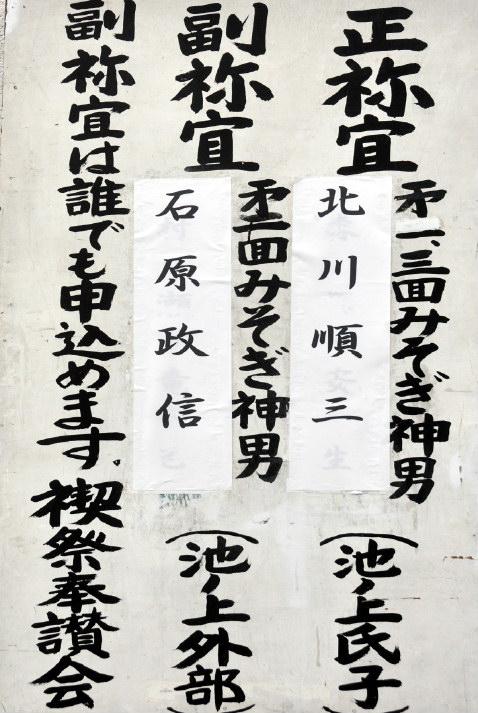 正祢宜
㐧一、三回みそぎ神男
北川順三
(池ノ上氏子)
副祢宜
㐧二回みそぎ神男
石原政信
(池ノ上外部)
副祢宜は誰でも申込めます。
禊祭奉讃会